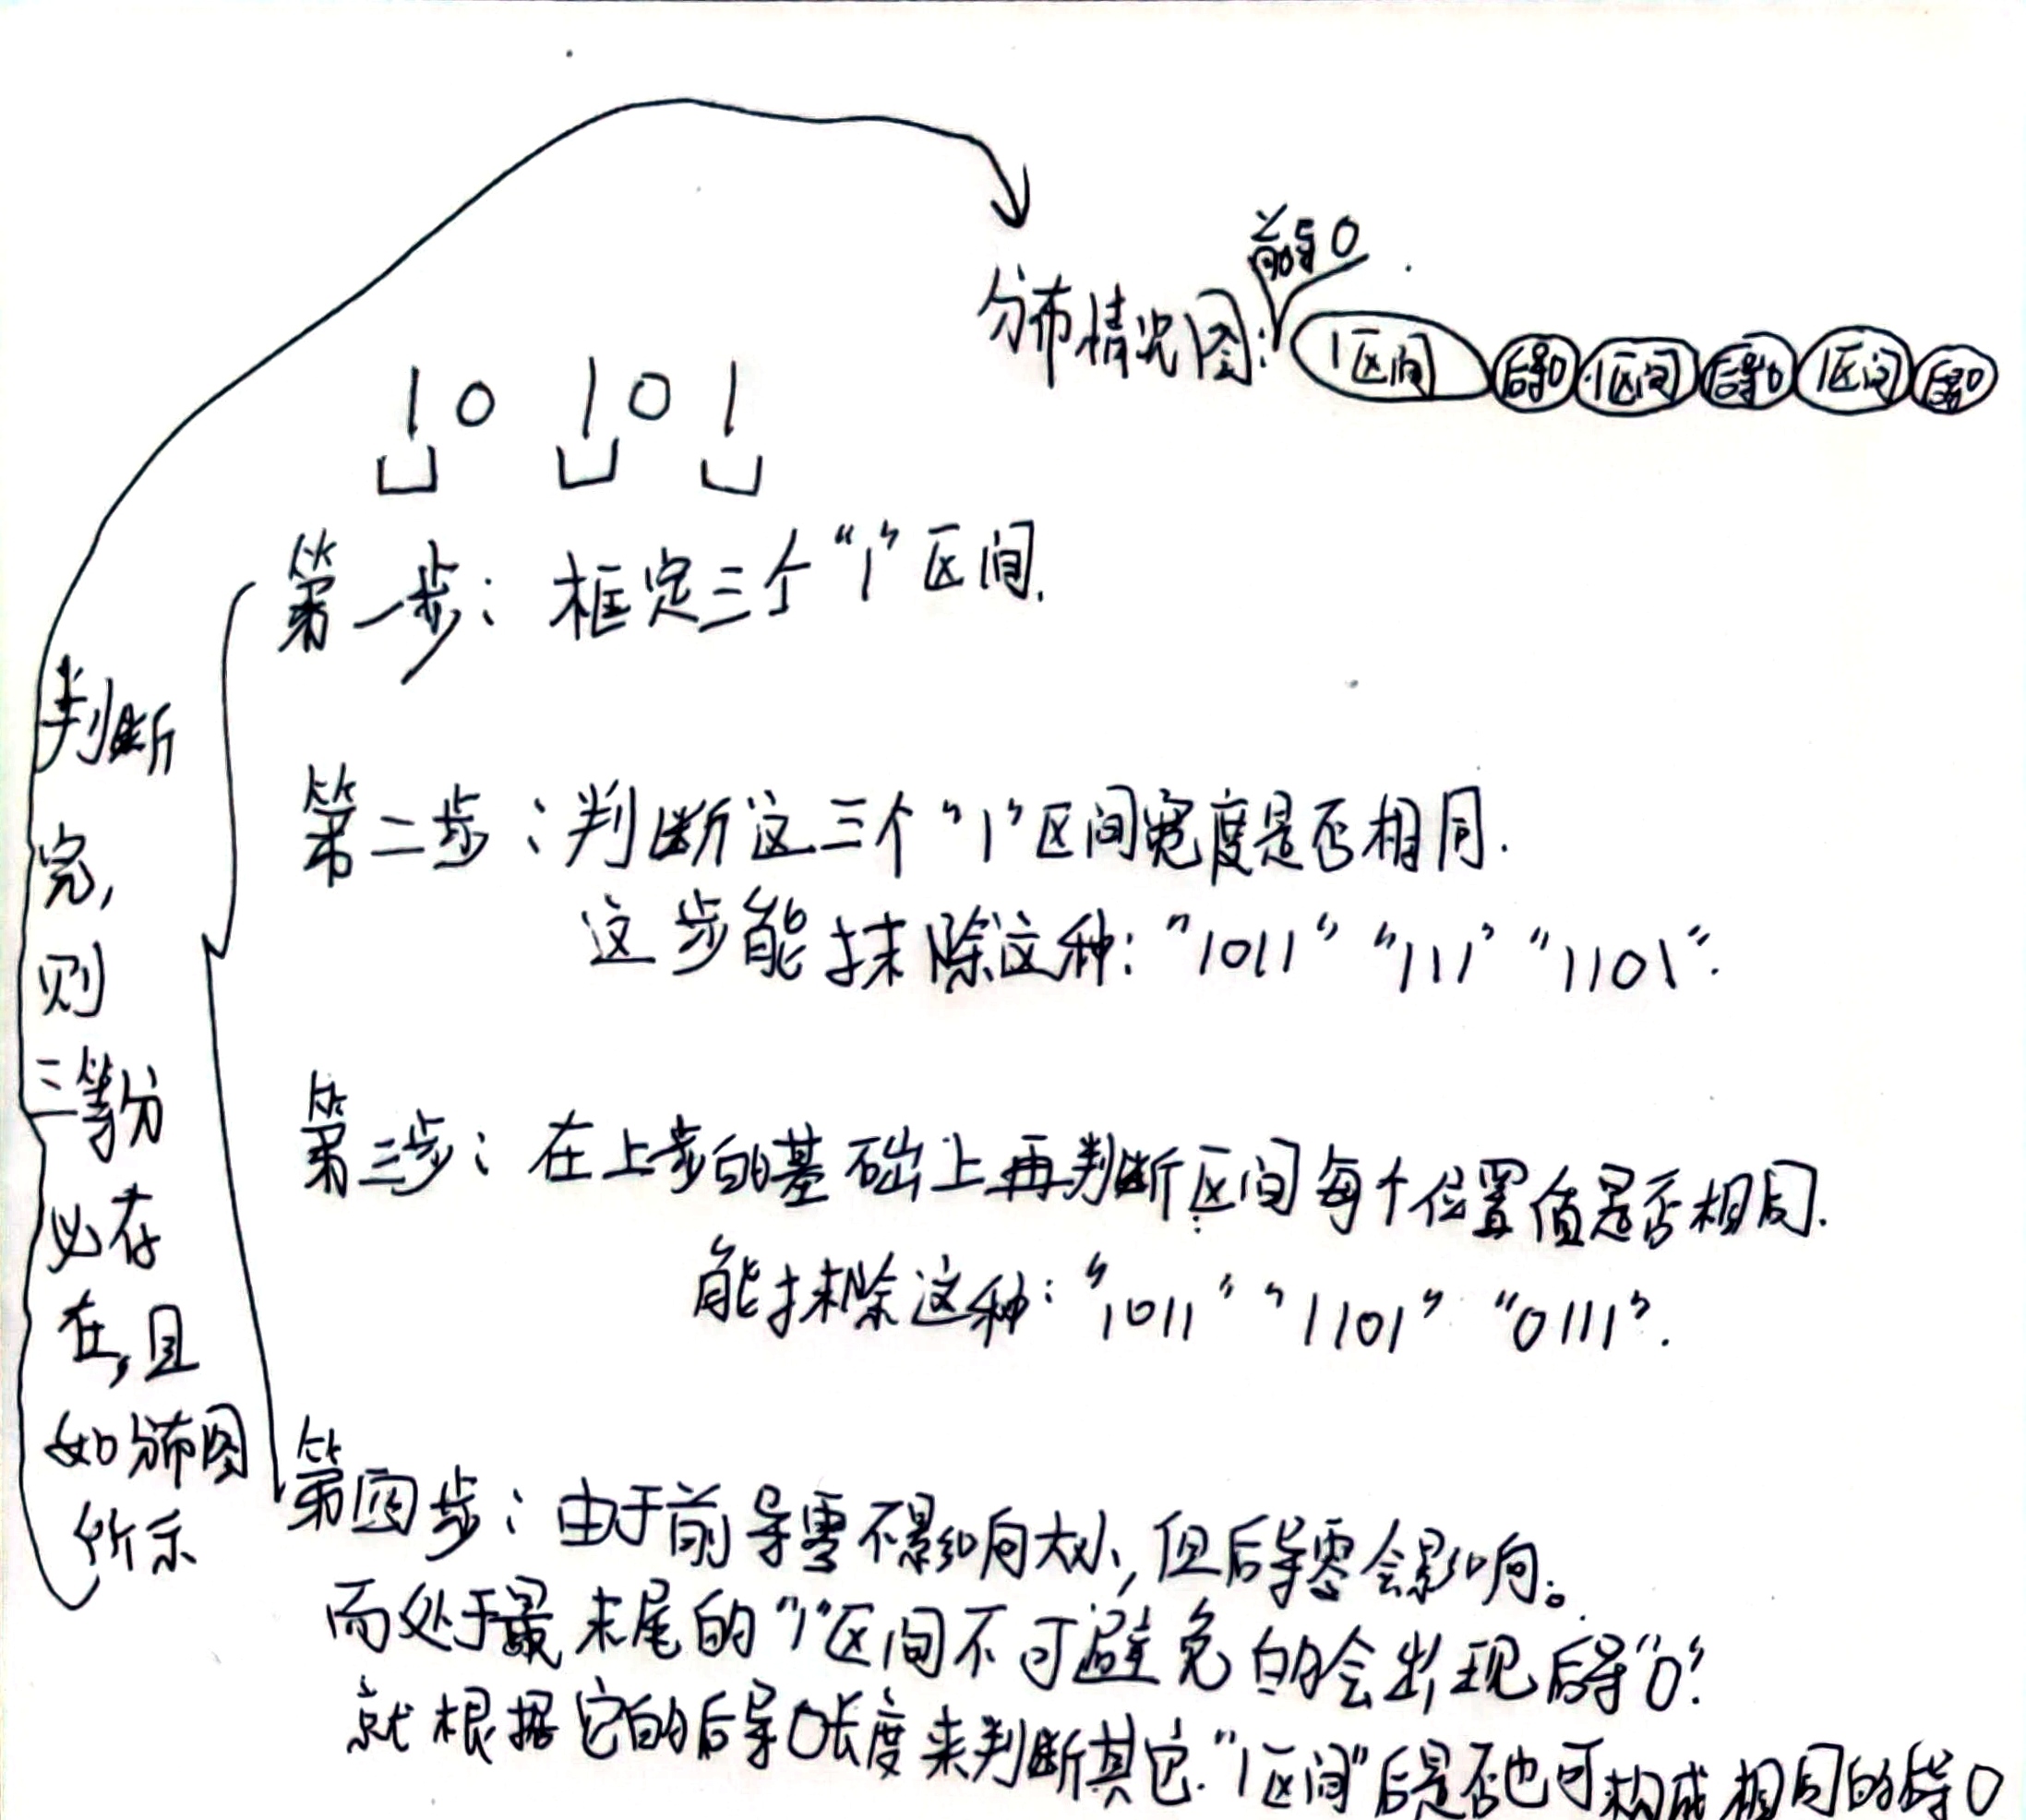 前导0
分布情况图:
1区间 后导0 1区间 后导0 1区间 后导0
1 0 1 0 1
第一步: 框定三个“1”区间.
第二步: 判断这三个“1”区间宽度是否相同.
这步能抹除这种: “1011” “111” “1101”.
第三步: 在上步的基础上再判断区间每个位置值是否相同.
能抹除这种: “1011” “1101” “0111”.
第四步: 由于前导零不影响大小, 但后导零会影响。
而处于最末尾的“1”区间不可避免的会出现后导“0”.
就根据它的后导0长度来判断其它“1区间”后是否也可构成相同的后导0
判断
完,
则
三等分
必存
在,且
如分布图
所示